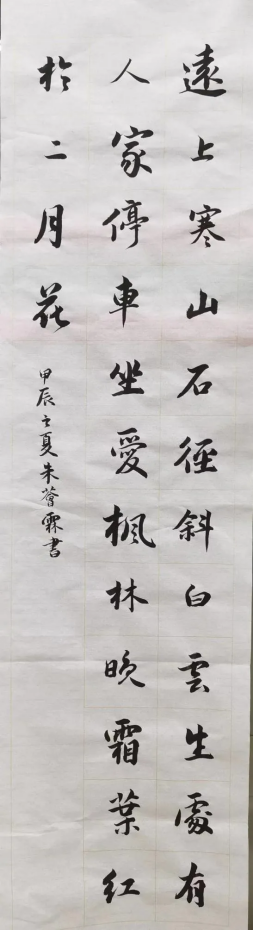 遠上寒山石徑斜白雲生處有
人家停車坐愛楓林晚霜葉紅
於二月花
甲辰之夏朱薈霖書